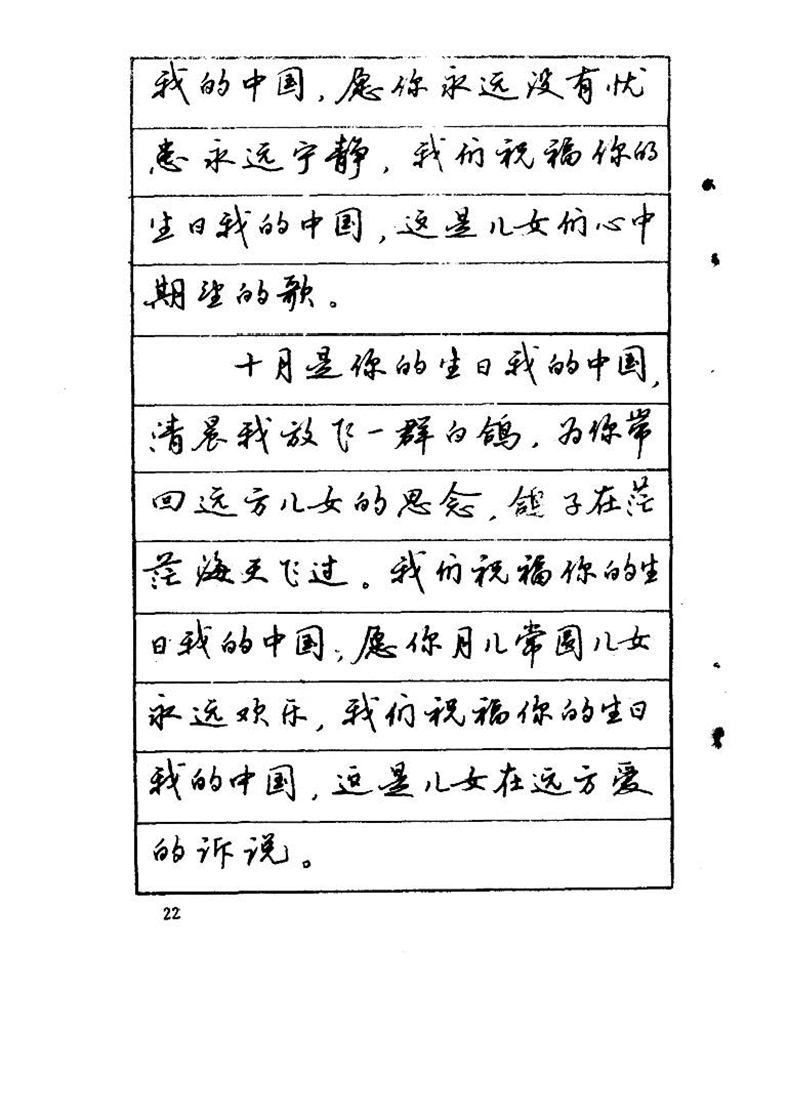 我的中国，愿你永远没有忧
患永远宁静，我们祝福你的
生日我的中国，这是儿女们心中
期望的歌。
十月是你的生日我的中国，
清晨我放飞一群白鸽，为你带
回远方儿女的思念，鸽子在茫
茫海天飞过。我们祝福你的生
日我的中国，愿你月儿常圆儿女
永远欢乐，我们祝福你的生日
我的中国，这是儿女在远方爱
的诉说。
22